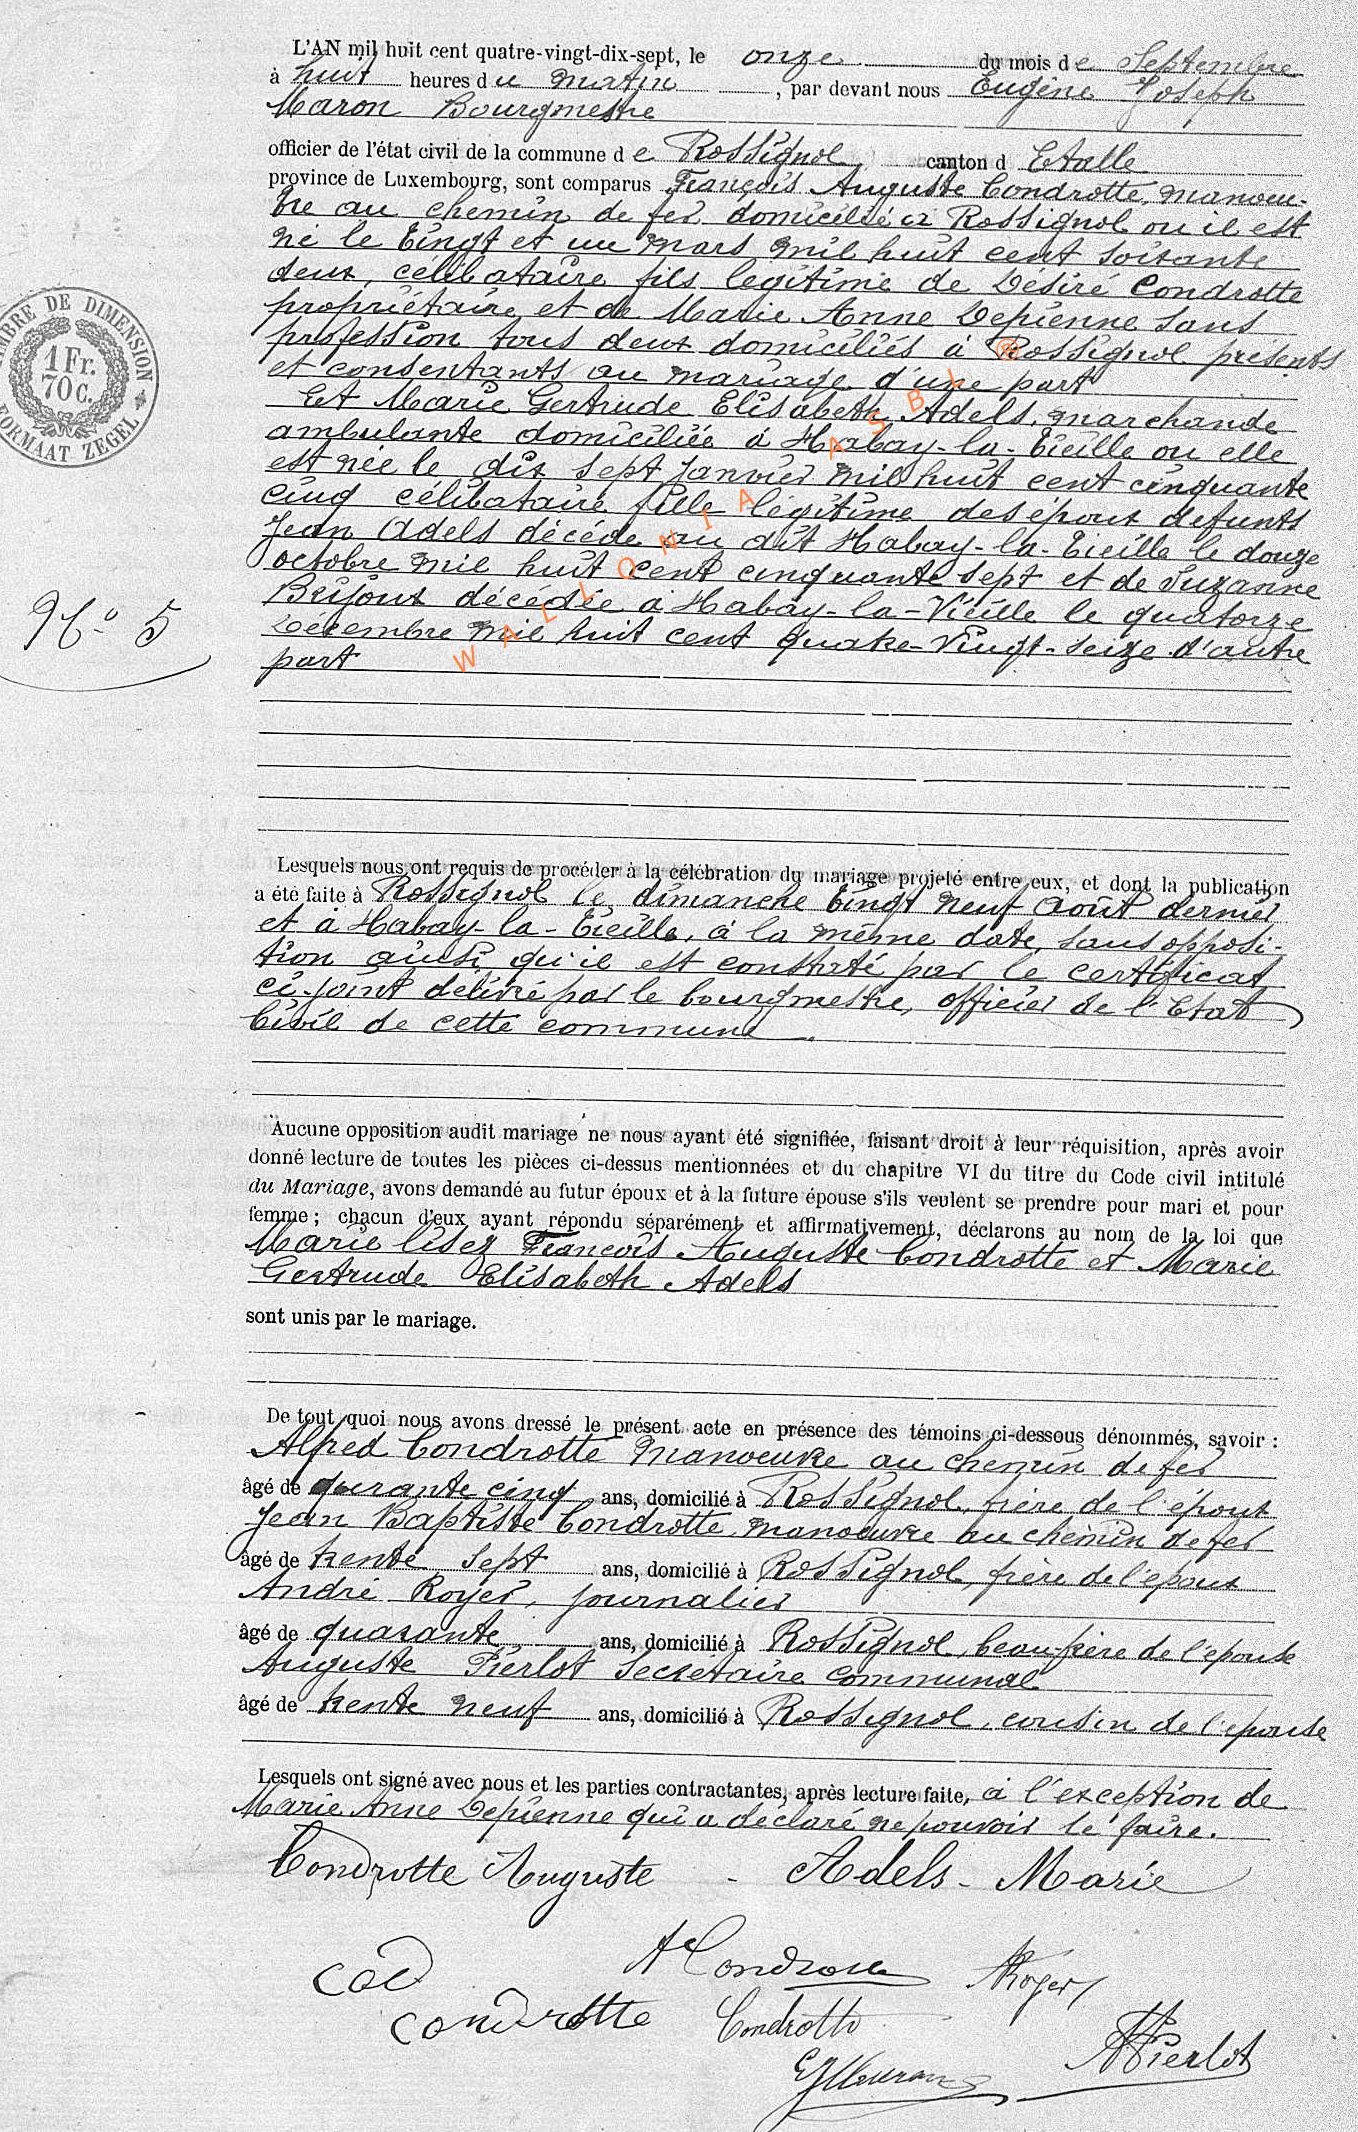 L'AN mil huit cent quatre-vingt-dix-sept, le onze du mois de Septembre
à huit heures du matin, par devant nous Eugène Joseph
Maron Bourgmestre
officier de l'état civil de la commune de Rossignol canton d Etalle
province de Luxembourg, sont comparus François Auguste Condrotte, manoeu-
vre au chemin de fer domicilié à Rossignol ou il est
né le vingt et un mars mil huit cent soixante
deux, célibataire fils légitime de Désiré Condrotte
propriétaire et de Marie Anne Depienne sans
profession tous deux domiciliés à Rossignol présents
et consentants au mariage d'une part
Et Marie Gertrude Elisabeth Adels, marchande
ambulante domiciliée à Habay-la-Vieille ou elle
est née le dix sept janvier mil huit cent cinquante
cinq célibataire fille légitime des époux defunts
Jean Adels décédé au dit Habay-la-Vieille le douze
octobre mil huit cent cinquante sept et de Suzanne
Brijoux décédée à Habay-la-Vieille le quatorze
Decembre mil huit cent quatre-vingt-seize d'autre
part
TIMBRE DE DIMENSION
1 Fr.
70 C.
FORMAAT ZEGEL
No 5
WALLONIA ASBL ®
Lesquels nous ont requis de procéder à la célébration du mariage projeté entre eux, et dont la publication
a été faite à Rossignol le dimanche vingt neuf Août dernier
et à Habay-la-Vieille, à la même date, sans opposi-
tion ainsi qu'il est constaté par le certificat
ci-joint délivré par le bourgmestre, officier de l'Etat
Civil de cette commune.
Aucune opposition audit mariage ne nous ayant été signifiée, faisant droit à leur réquisition, après avoir
donné lecture de toutes les pièces ci-dessus mentionnées et du chapitre VI du titre du Code civil intitulé
du Mariage, avons demandé au futur époux et à la future épouse s'ils veulent se prendre pour mari et pour
femme ; chacun d'eux ayant répondu séparément et affirmativement, déclarons au nom de la loi que
Marie lisez François Auguste Condrotte et Marie
Gertrude Elisabeth Adels
sont unis par le mariage.
De tout quoi nous avons dressé le présent acte en présence des témoins ci-dessous dénommés, savoir :
Alfred Condrotte manoeuvre au chemin de fer
âgé de quarante cinq ans, domicilié à Rossignol, frère de l'époux
Jean Baptiste Condrotte manoeuvre au chemin de fer
âgé de trente sept ans, domicilié à Rossignol, frère de l'époux
André Royer, journalier
âgé de quarante ans, domicilié à Rossignol, beau-frère de l'épouse
Auguste Pierlot Secrétaire communal
âgé de trente neuf ans, domicilié à Rossignol, cousin de l'épouse
Lesquels ont signé avec nous et les parties contractantes, après lecture faite, à l'exception de
Marie Anne Depienne qui a déclaré ne pouvoir le faire.
Condrotte Auguste - Adels - Marie
A Condrotte ARoyer
condrotte Condrotte
APierlot
EJMaron